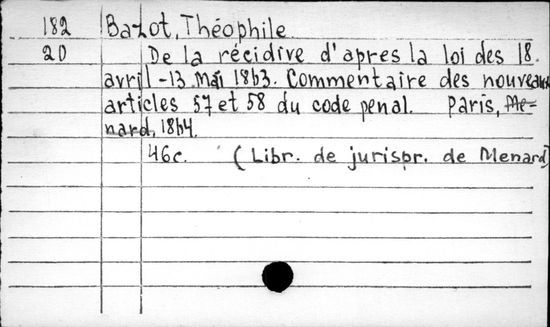 182 Bazot, Théophile
20 De la récidive d'apres la loi des 18.
avril-13 mai 1863. Commentaire des nouveaux
articles 57 et 58 du code penal. Paris, Me-
nard, 1864.
46c. (Libr. de jurispr. de Menard)